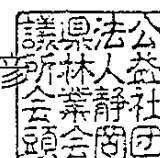 公益社団
法人静岡
県林業会
議所会頭
彦